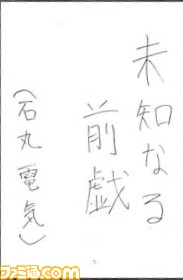 未知なる
前戯
(石丸電気)
ファミ通.com